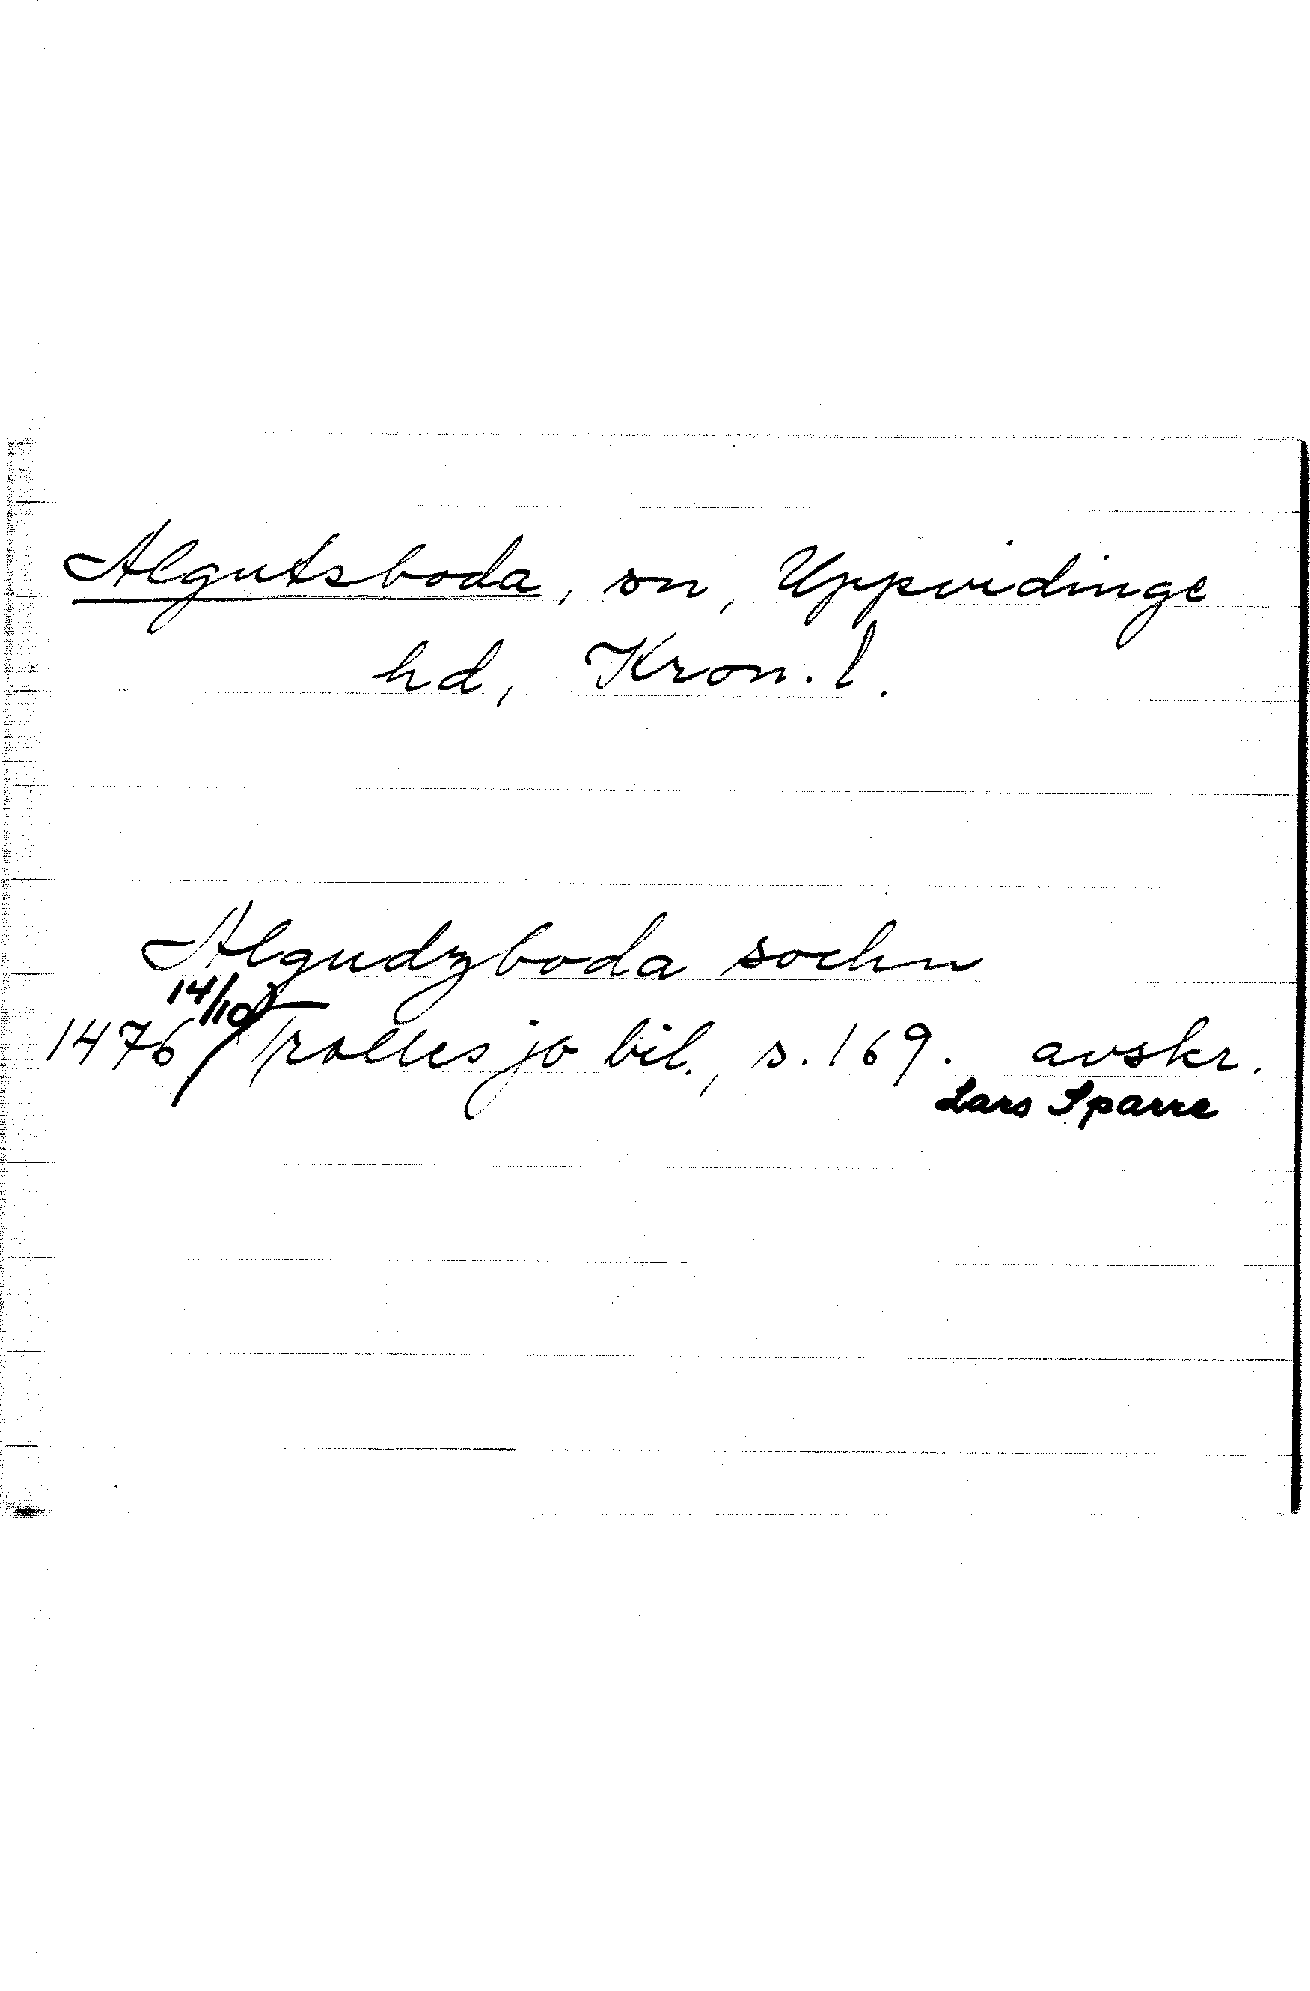 Algutsboda, sn, Uppvidinge
hd, Kron. l.
Algudzboda sochn
14/10
1476 Trolles jo bil., s. 169. avskr.
Lars Sparre